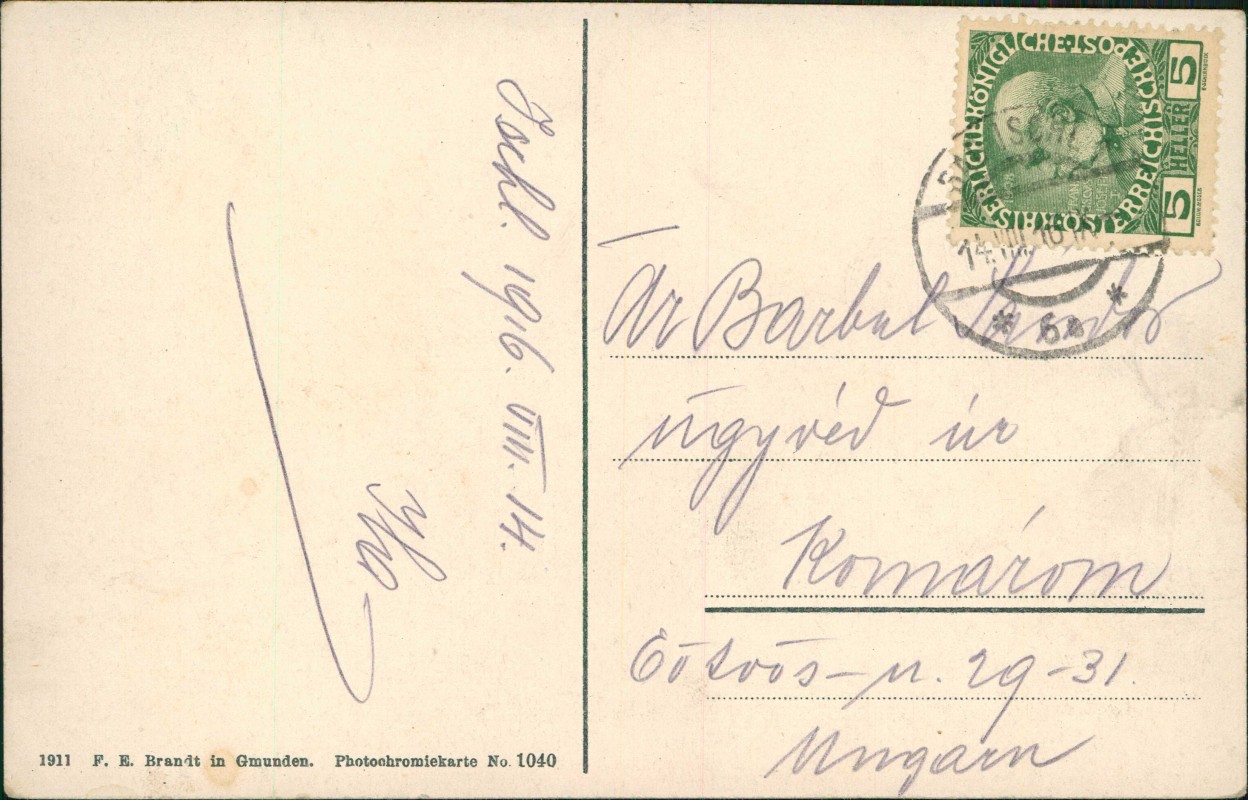 Ischl. 1916. VIII. 14.
1911 F. E. Brandt in Gmunden. Photochromiekarte No. 1040
KAISERLICHE KÖNIGLICHE ÖSTERREICHISCHE POST
5 HELLER 5
ISCHL
14. VIII. 16
* 6a *
Dr Barbul
ügyvéd úr
Komárom
Eötvös-u. 29-31.
Ungarn